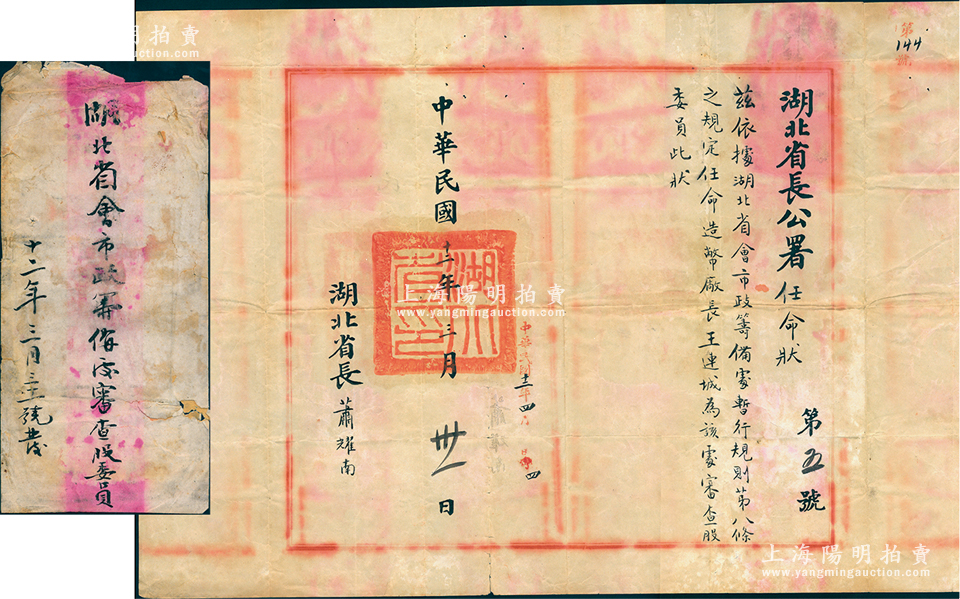 第
144
號
湖北省長公署任命狀
第五號
茲依據湖北省會市政籌備處暫行規則第八條
之規定任命造幣廠長王連城為該處審查股
委員此狀
中華民國十二年三月卅一日
湖北省長蕭耀南
湖北省長之印
中華民國十二年四月 日 四
湖北省會市政籌備處審查股委員
十二年三月三十一號發
上海陽明拍賣
www.yangmingauction.com
上海陽明拍賣
www.yangmingauction.com
上海陽明拍賣
www.yangmingauction.com